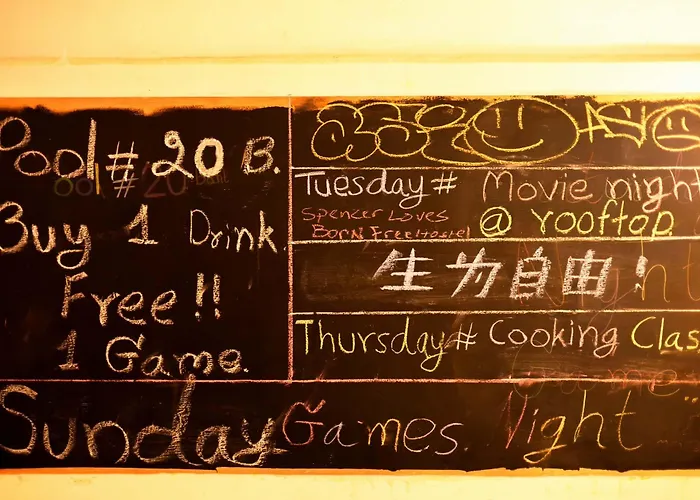 Pool # 20 B.
Buy 1 Drink
Free !!
1 Game.
Tuesday # Movie night
@ rooftop
Spencer Loves
Born Free Hostel
生为自由!
Thursday # Cooking Clas
Sunday Games. Night